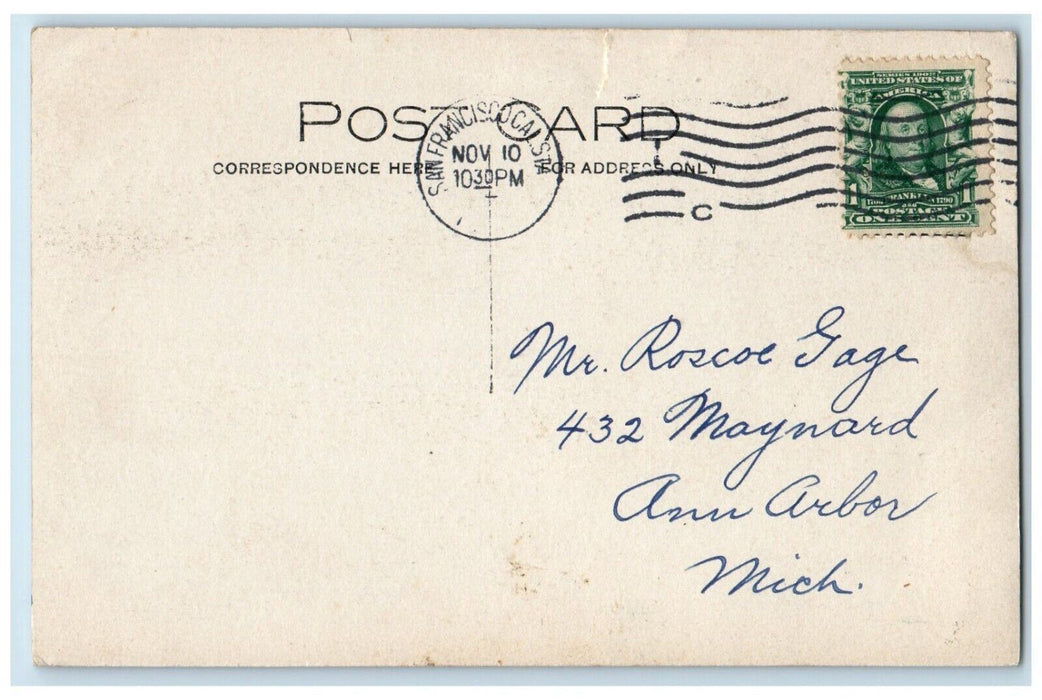 POST CARD
CORRESPONDENCE HERE
FOR ADDRESS ONLY
SAN FRANCISCO CAL. STA.
NOV 10
1030 PM
C
SERIES 1902
UNITED STATES OF
AMERICA
1 1
1706 FRANKLIN 1790
POSTAGE
ONE CENT
Mr. Roscoe Gage
432 Maynard
Ann Arbor
Mich.